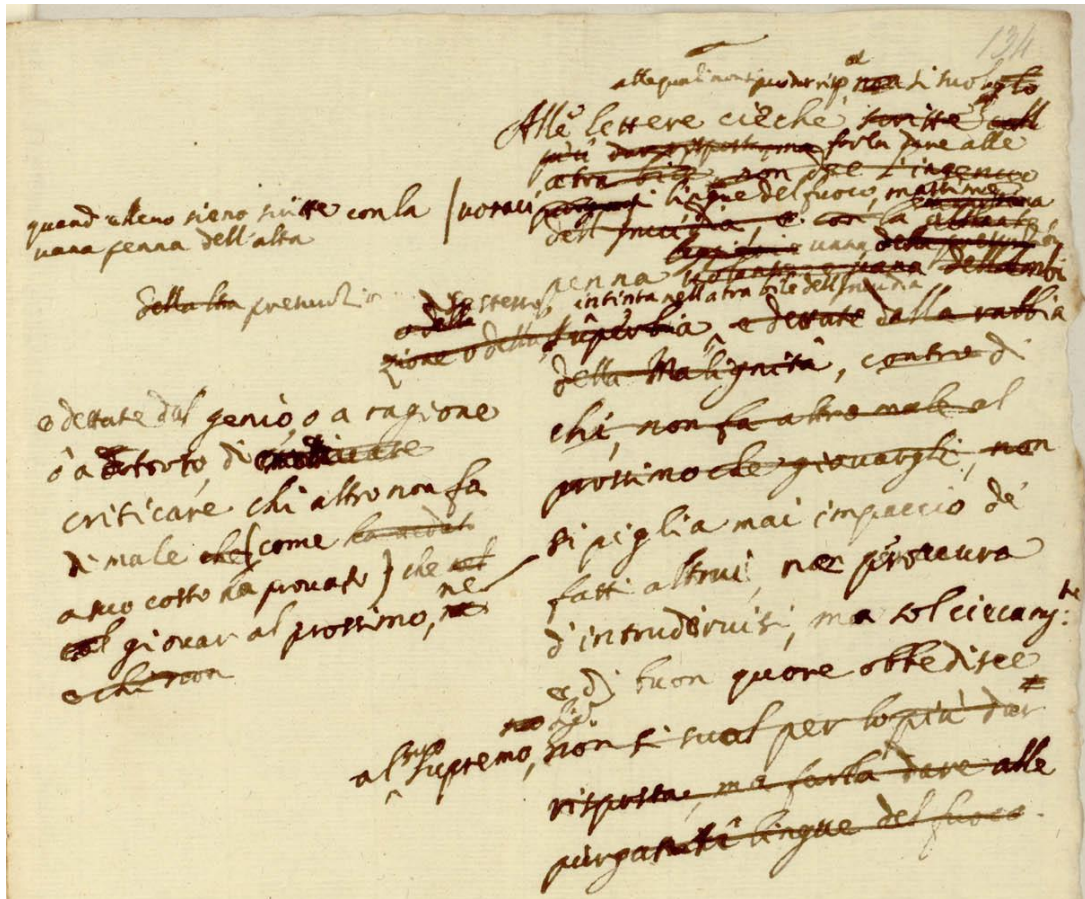 134
alle quali non si può dar risp. non si suol
Alle lettere cieche scritte coll
più dar risposta, ma farla dare alle
atra bile, non che l'ingenuo
voraci, purganti lingue del fuoco, massime
dell'invidia, e con la
quand'alleno sieno scritte con la
vana penna dell'alta
vana della presunzion
penna volante e vana dell'ambi
della alta presunzio
intinta nell'atra bile dell'invidia
o della stessa
zione o della superbia, e dettate dalla rabbia
della Malignità, contro di
chi, non fa altro male al
prossimo che giovargli, non
si piglia mai impaccio de'
fatti altrui, ne procura
d'intrudervisi, ma sol
e di buon quore obbedisce
al suo supremo, non si suol per lo più dar
risposta, ma farla dare alle
purganti lingue del fuoco.
e dettate dal genio, o a ragione
ô a torto, di
criticare chi altro non fa
di male che (come
a suo costo ha provato) che
giovar al prossimo, ne
e chi non